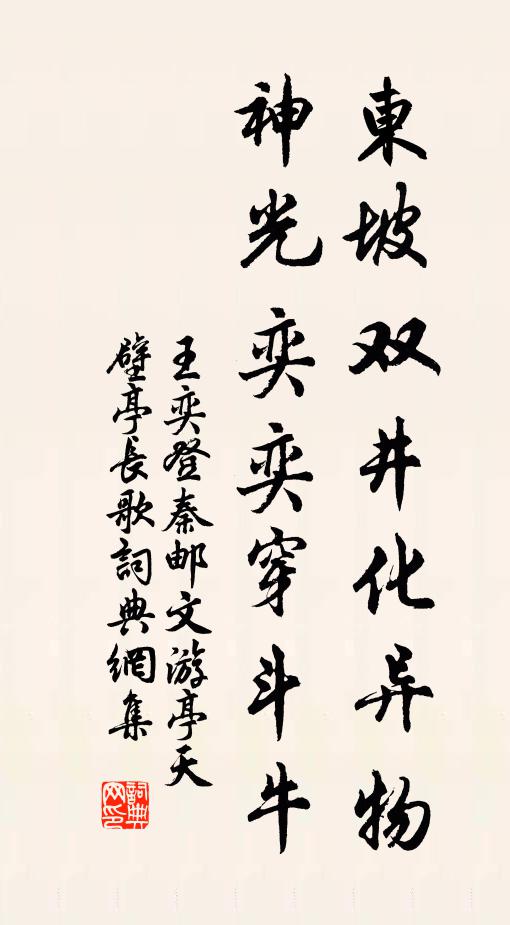 東坡双井化异物
神光奕奕穿斗牛
王奕登秦邮文游亭天
壁亭长歌詞典網集
詞典网印